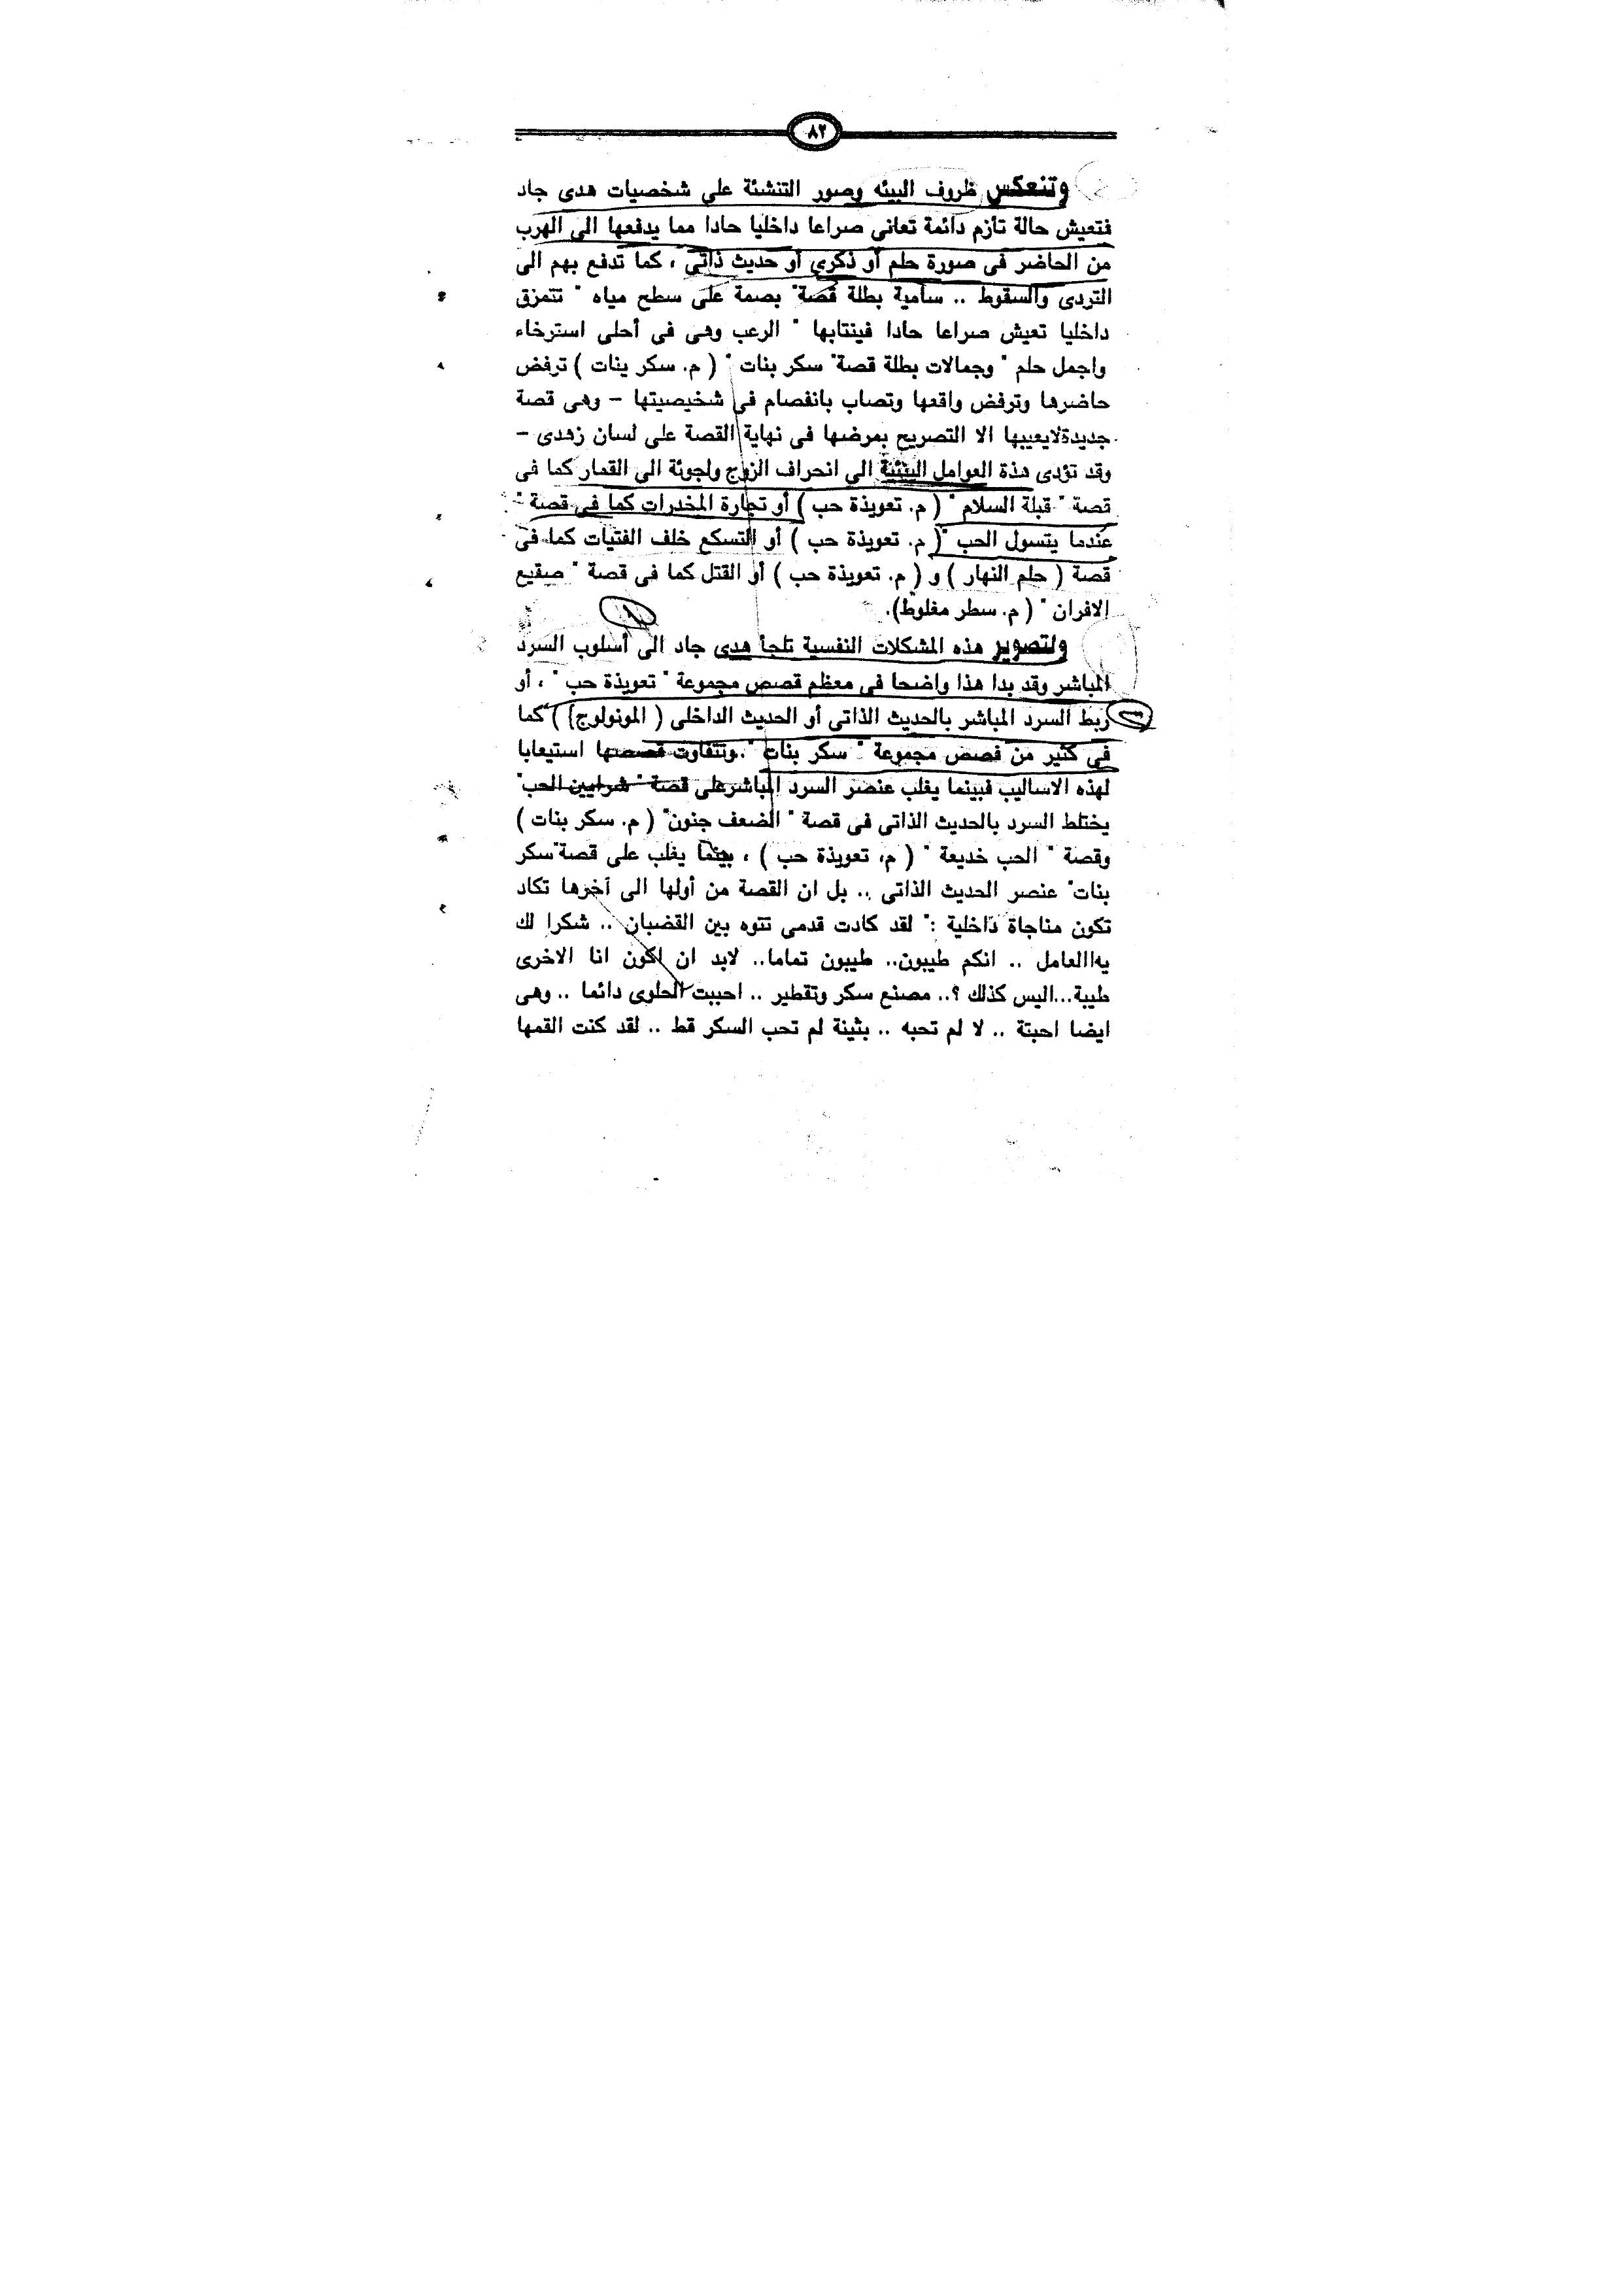 ٨٢
وتنعكس ظروف البيئه وصور التنشئة على شخصيات هدى جاد
فتعيش حالة تأزم دائمة تعانى صراعا داخليا حادا مما يدفعها الى الهرب
من الحاضر فى صورة حلم أو ذكرى أو حديث ذاتى ، كما تدفع بهم الى
التردى والسقوط .. سامية بطلة قصة" بصمة على سطح مياه " تتمزق
داخليا تعيش صراعا حادا فينتابها " الرعب وهى فى أحلى استرخاء
واجمل حلم " وجمالات بطلة قصة" سكر بنات " ( م. سكر بنات ) ترفض
حاضرها وترفض واقعها وتصاب بانفصام فى شخيصيتها – وهى قصة
جديدةلايعيبها الا التصريح بمرضها فى نهاية القصة على لسان زهدى –
وقد تؤدى هذة العوامل البيئية الى انحراف الزوج ولجوئة الى القمار كما فى
قصة " قبلة السلام " ( م. تعويذة حب ) أو تجارة المخدرات كما فى قصة "
عندما يتسول الحب "( م. تعويذة حب ) أو التسكع خلف الفتيات كما فى
قصة ( حلم النهار ) و ( م. تعويذة حب ) أو القتل كما فى قصة " صقيع
الافران " ( م. سطر مغلوط).
ولتصوير هذه المشكلات النفسية تلجأ هدى جاد الى أسلوب السرد
المباشر وقد بدا هذا واضحا فى معظم قصص مجموعة " تعويذة حب " ، أو
ربط السرد المباشر بالحديث الذاتى أو الحديث الداخلى ( المونولوج) ) كما
فى كثير من قصص مجموعة " سكر بنات ".وتتفاوت قصصها استيعابا
لهذه الاساليب فبينما يغلب عنصر السرد المباشرعلى قصة " شرايين الحب"
يختلط السرد بالحديث الذاتى فى قصة " الضعف جنون" ( م. سكر بنات )
وقصة " الحب خديعة " ( م، تعويذة حب ) ، بينما يغلب على قصة"سكر
بنات" عنصر الحديث الذاتى .. بل ان القصة من أولها الى آخرها تكاد
تكون مناجاة داخلية :" لقد كادت قدمى تتوه بين القضبان .. شكرا لك
يهاالعامل .. انكم طيبون.. طيبون تماما.. لابد ان اكون انا الاخرى
طيبة...اليس كذلك ؟.. مصنع سكر وتقطير .. احببت الحلوى دائما .. وهى
ايضا احبتة .. لا لم تحبه .. بثينة لم تحب السكر قط .. لقد كنت القمها